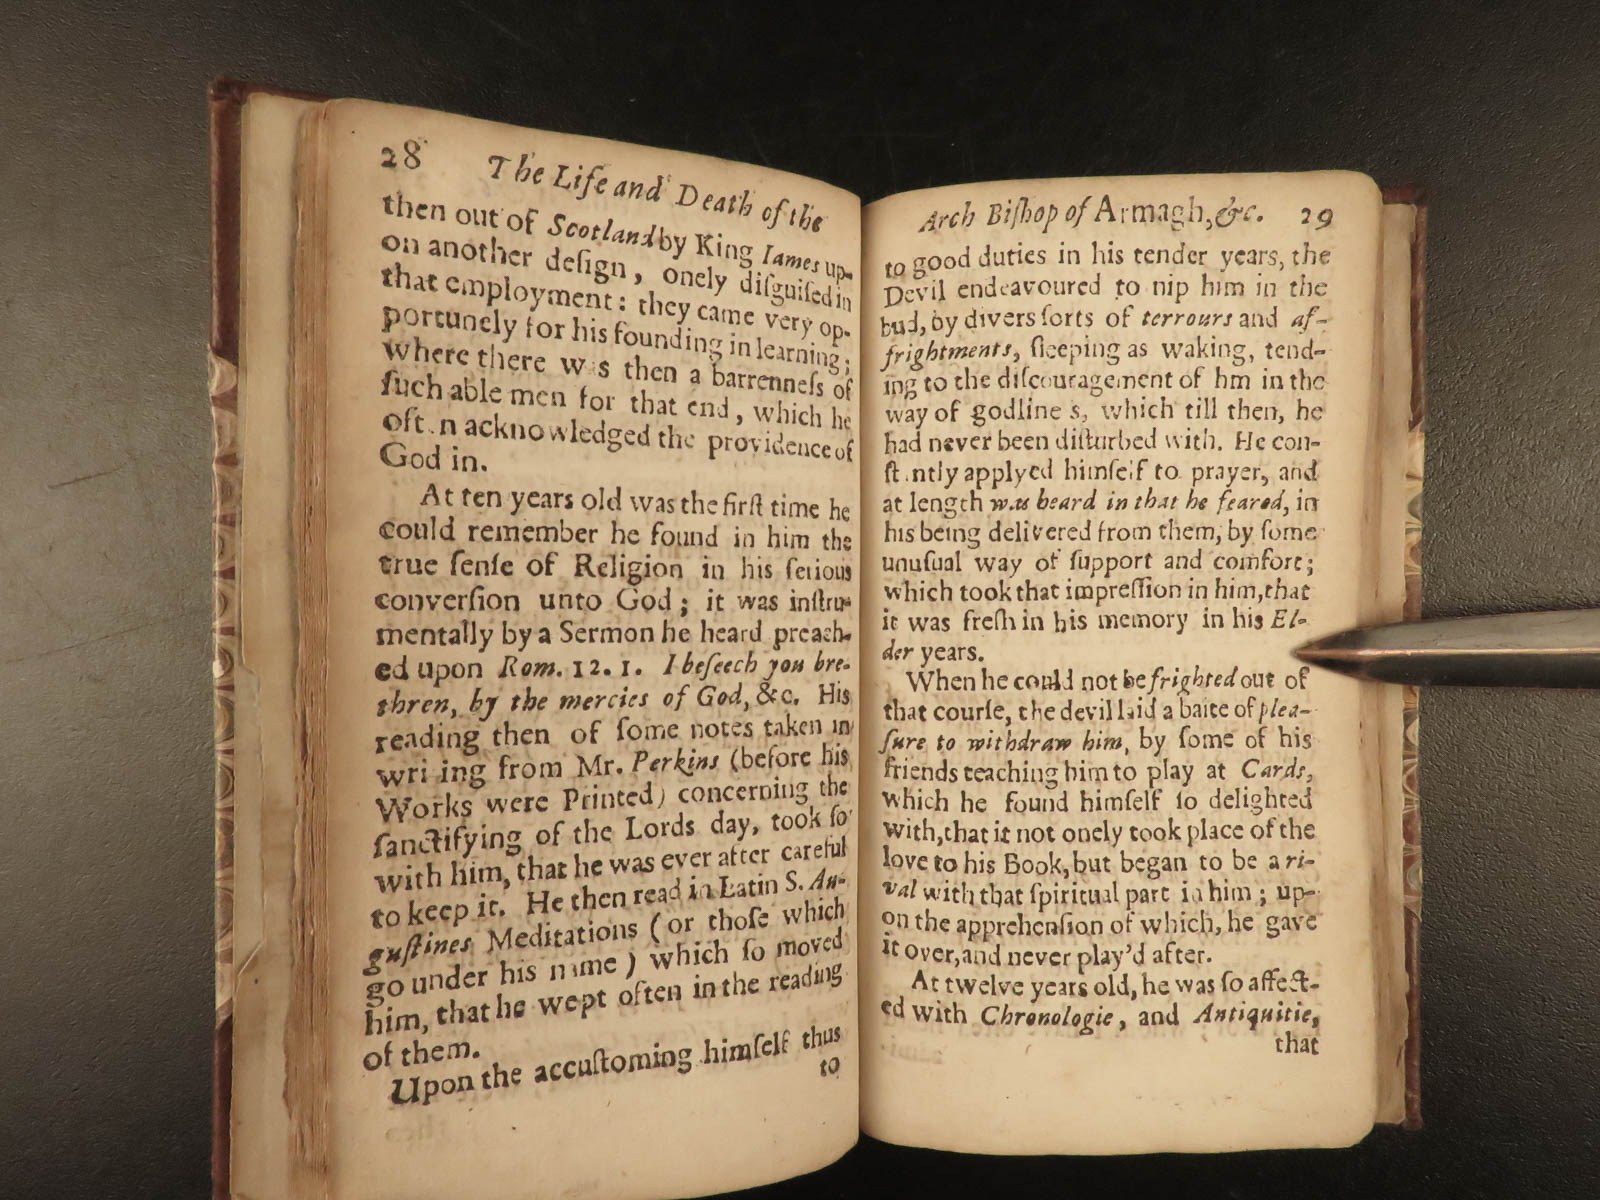 28 The Life and Death of the
then out of Scotland by King Iames up-
on another deſign, onely diſguiſed in
that employment: they came very op-
portunely for his founding in learning;
where there w s then a barrenneſs of
ſuch able men for that end, which he
oft n acknowledged the providence of
God in.
At ten years old was the firſt time he
could remember he found in him the
true ſenſe of Religion in his ſerious
converſion unto God; it was inſtru-
mentally by a Sermon he heard preach-
ed upon Rom. 12. 1. I beſeech you bre-
thren, by the mercies of God, &c. His
reading then of ſome notes taken in
wri ing from Mr. Perkins (before his
Works were Printed) concerning the
ſanctifying of the Lords day, took ſo
with him, that he was ever after careful
to keep it. He then read in Latin S. Au-
guſtines Meditations (or thoſe which
go under his name) which ſo moved
him, that he wept often in the reading
of them.
Upon the accuſtoming himſelf thus
to
Arch Biſhop of Armagh, &c. 29
to good duties in his tender years, the
Devil endeavoured to nip him in the
bud, by divers ſorts of terrours and af-
frightments, ſleeping as waking, tend-
ing to the diſcouragement of hm in the
way of godline s, which till then, he
had never been diſturbed with. He con-
ſt ntly applyed himſelf to prayer, and
at length was heard in that he feared, in
his being delivered from them, by ſome
unuſual way of ſupport and comfort;
which took that impreſſion in him, that
it was freſh in his memory in his El-
der years.
When he could not be frighted out of
that courſe, the devil laid a baite of plea-
ſure to withdraw him, by ſome of his
friends teaching him to play at Cards,
which he found himſelf ſo delighted
with, that it not onely took place of the
love to his Book, but began to be a ri-
val with that ſpiritual part in him; up-
on the apprehenſion of which, he gave
it over, and never play'd after.
At twelve years old, he was ſo affect-
ed with Chronologie, and Antiquitie,
that